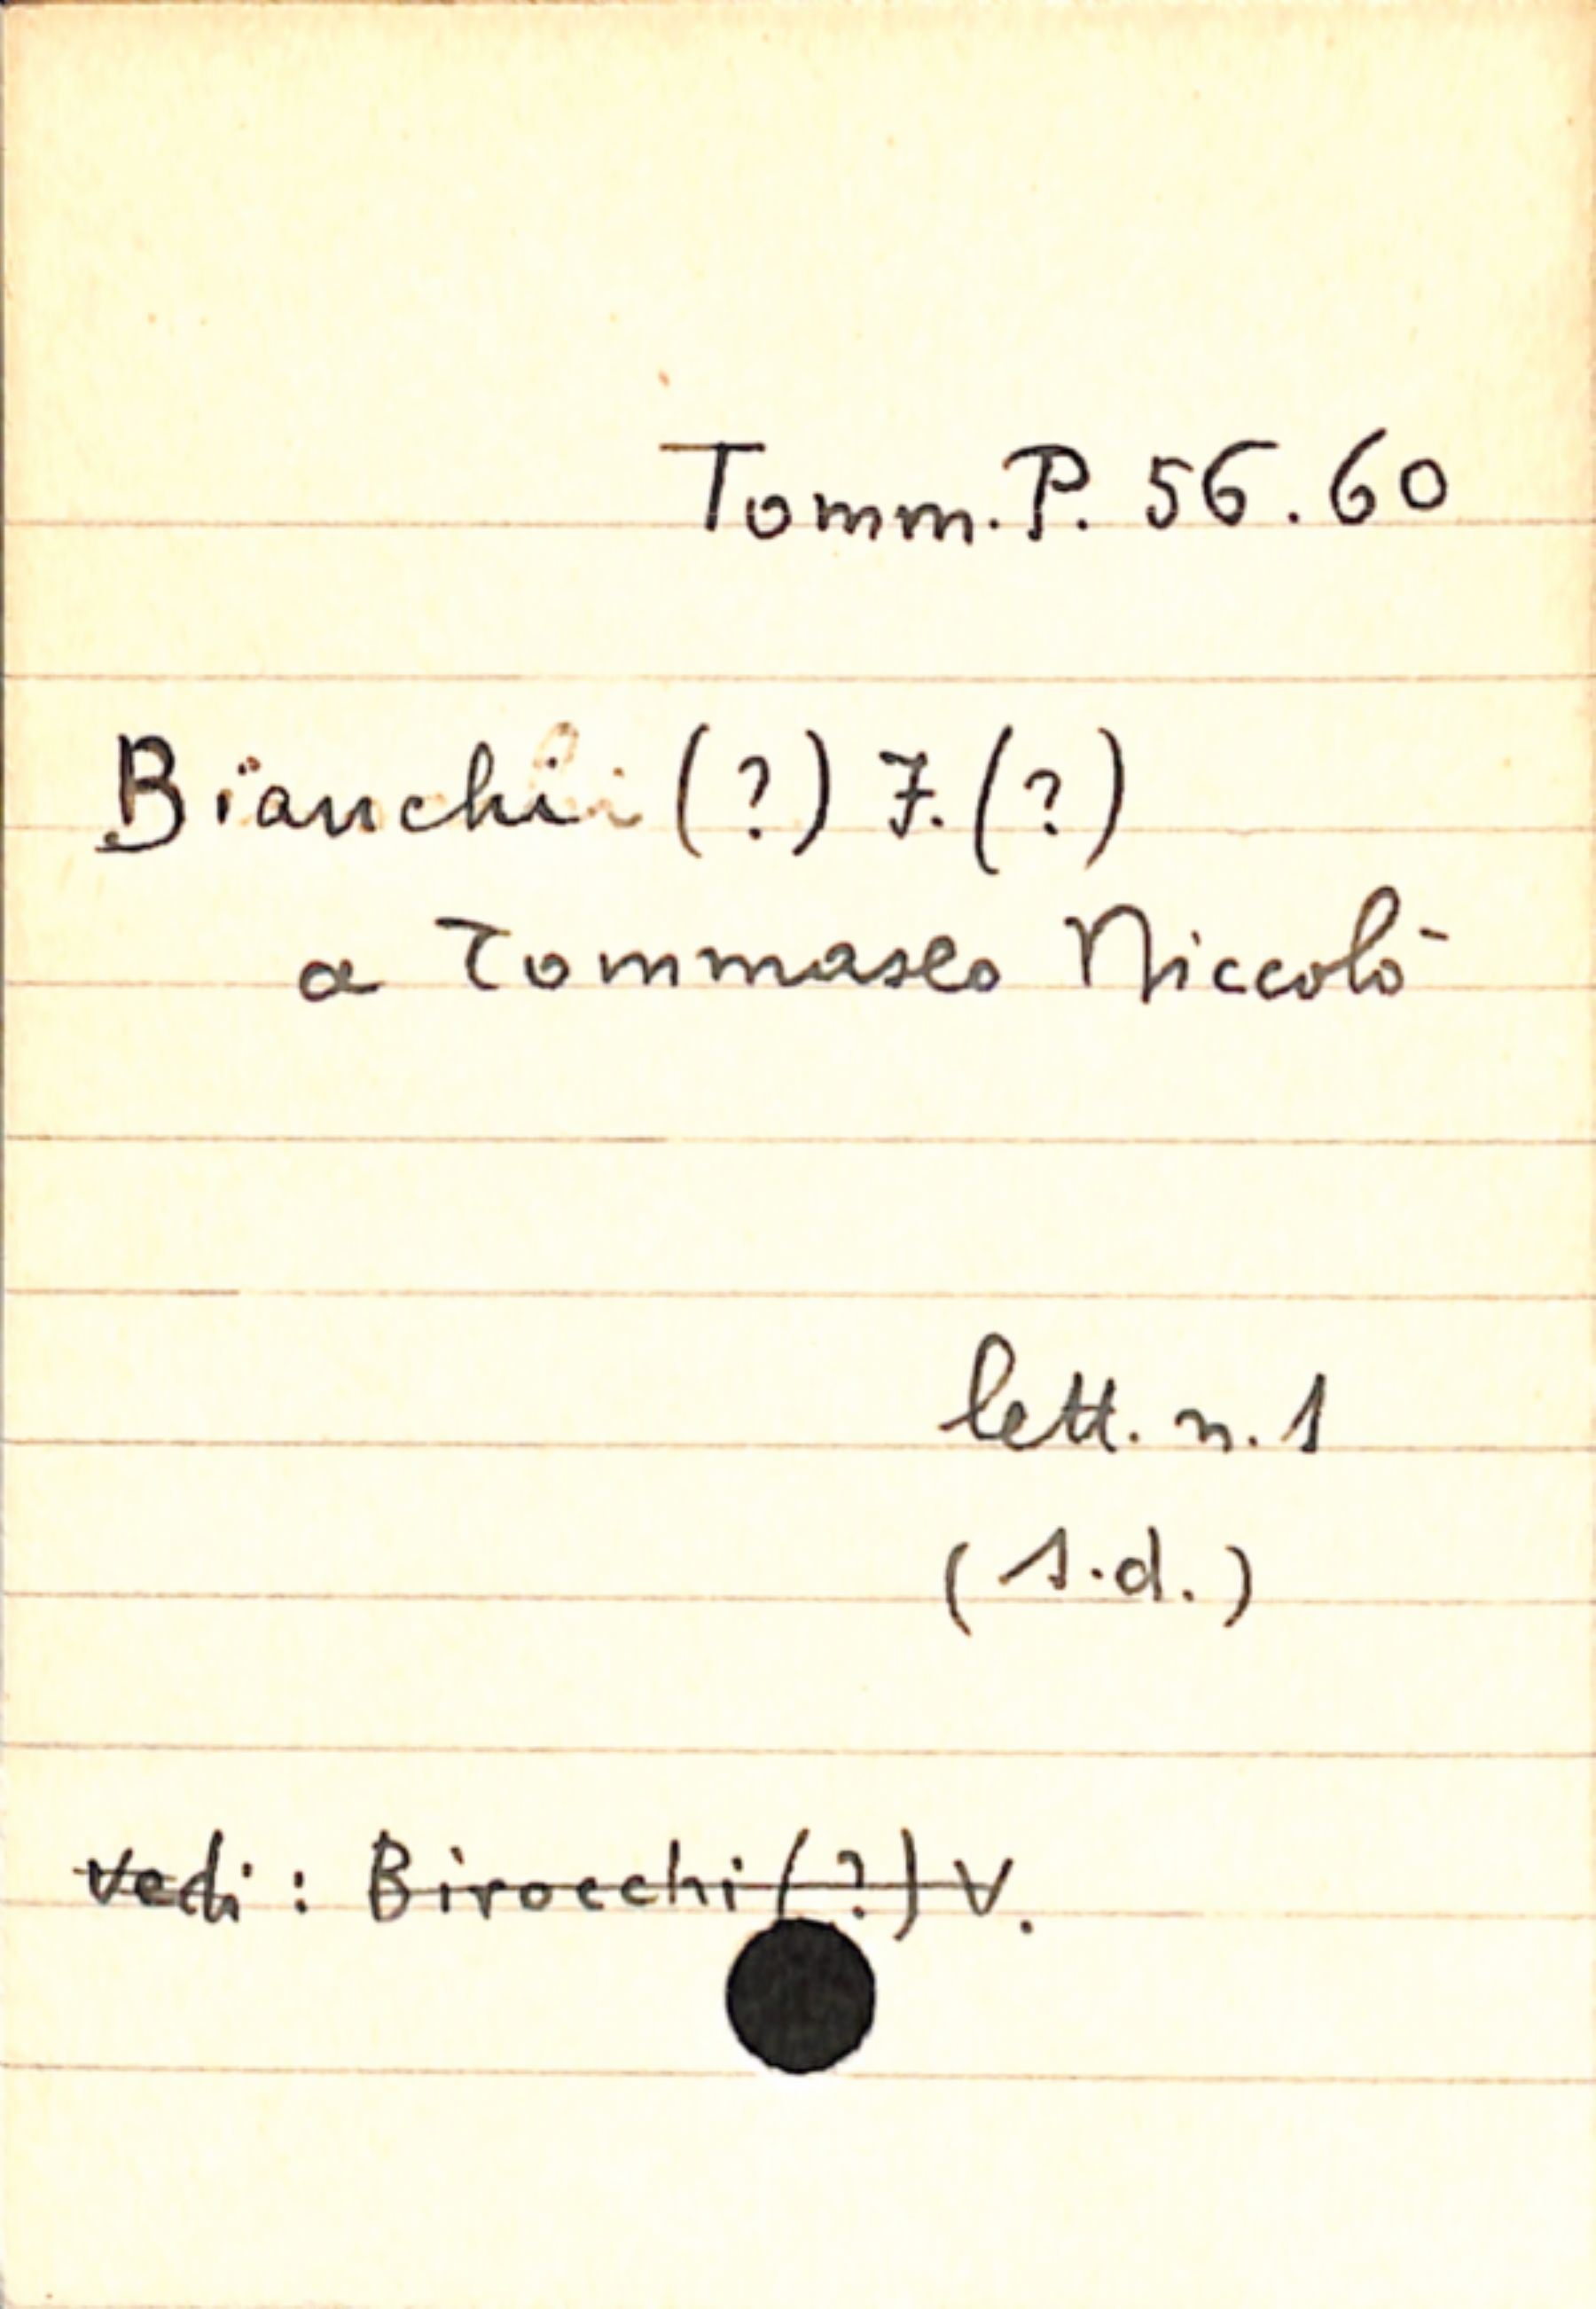 Tomm. P. 56.60
Bianchi (?) F. (?)
a Tommaseo Niccolò
lett. n. 1
(s.d.)
vedi: Birocchi (?) V.